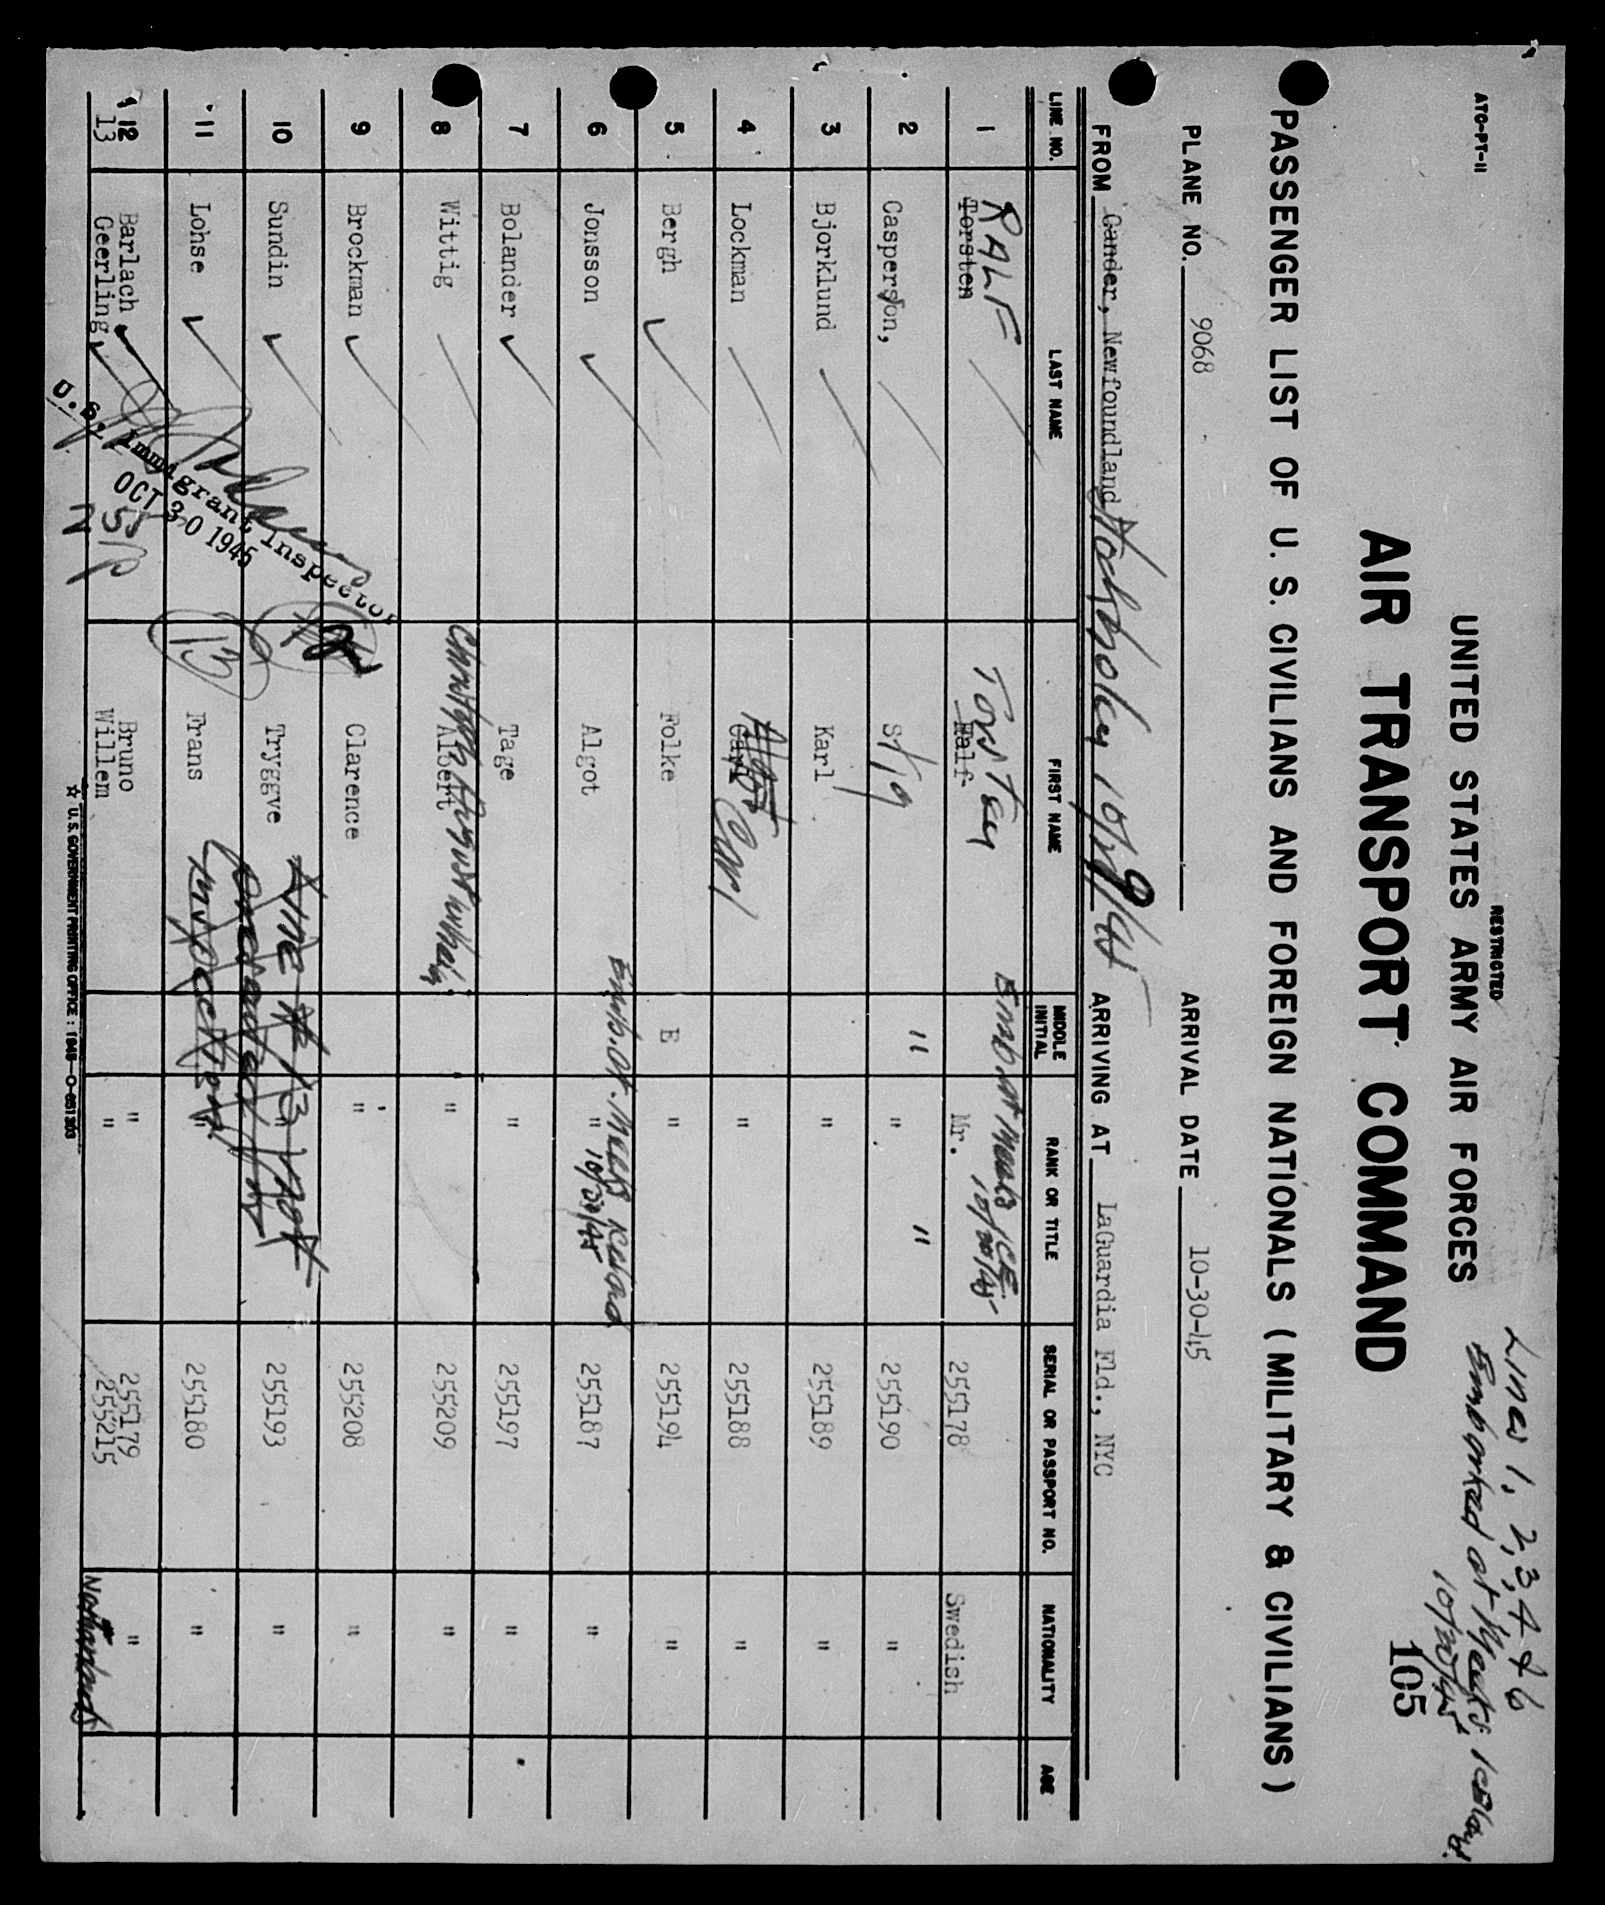 ATC-PT-11
RESTRICTED
Lines 1, 2, 3, 4 & 6
Embarked at Meeks, Iceland.
UNITED STATES ARMY AIR FORCES
AIR TRANSPORT COMMAND
105
PASSENGER LIST OF U. S. CIVILIANS AND FOREIGN NATIONALS (MILITARY & CIVILIANS)
PLANE NO. 9068 ARRIVAL DATE 10-30-45
FROM Gander, Newfoundland Stockholm ARRIVING AT LaGuardia Fld., NYC
LINE NO. LAST NAME FIRST NAME MIDDLE INITIAL RANK OR TITLE SERIAL OR PASSPORT NO. NATIONALITY AGE
RALF Torsten Emb. at Meeks ICE
1 Torsten Ralf Mr. 255178 Swedish
" "
2 Casperson, Stig " 255190 "
3 Bjorklund Karl " 255189 "
4 Lockman Carl Carl " 255188 "
5 Bergh Folke E " 255194 "
Emb. at Meeks Iceland
6 Jonsson Algot " 255187 "
7 Bolander Tage " 255197 "
8 Wittig Albert " 255209 "
9 Brockman Clarence " 255208 "
Line # 13 not
10 Sundin Tryggve " 255193 "
presented for
11 Lohse Frans " 255180 "
inspection.
13
12 Barlach Bruno " 255179 "
13 Geerling Willem " 255215 Netherlands
U. S. Immigrant Inspector
OCT 30 1945
755 P
☆ U. S. GOVERNMENT PRINTING OFFICE : 1945—O-651303